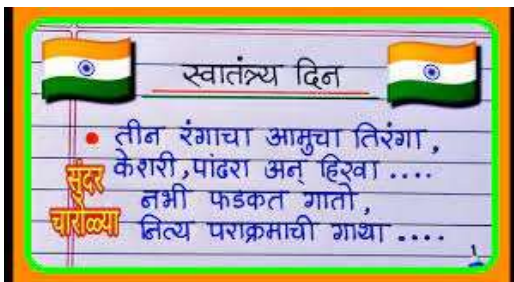 स्वातंत्र्य दिन
तीन रंगाचा आमुचा तिरंगा,
केशरी, पांढरा अन् हिरवा ....
नभी फडकत गातो,
नित्य पराक्रमाची गाथा ....
सुंदर
चारोळ्या
1